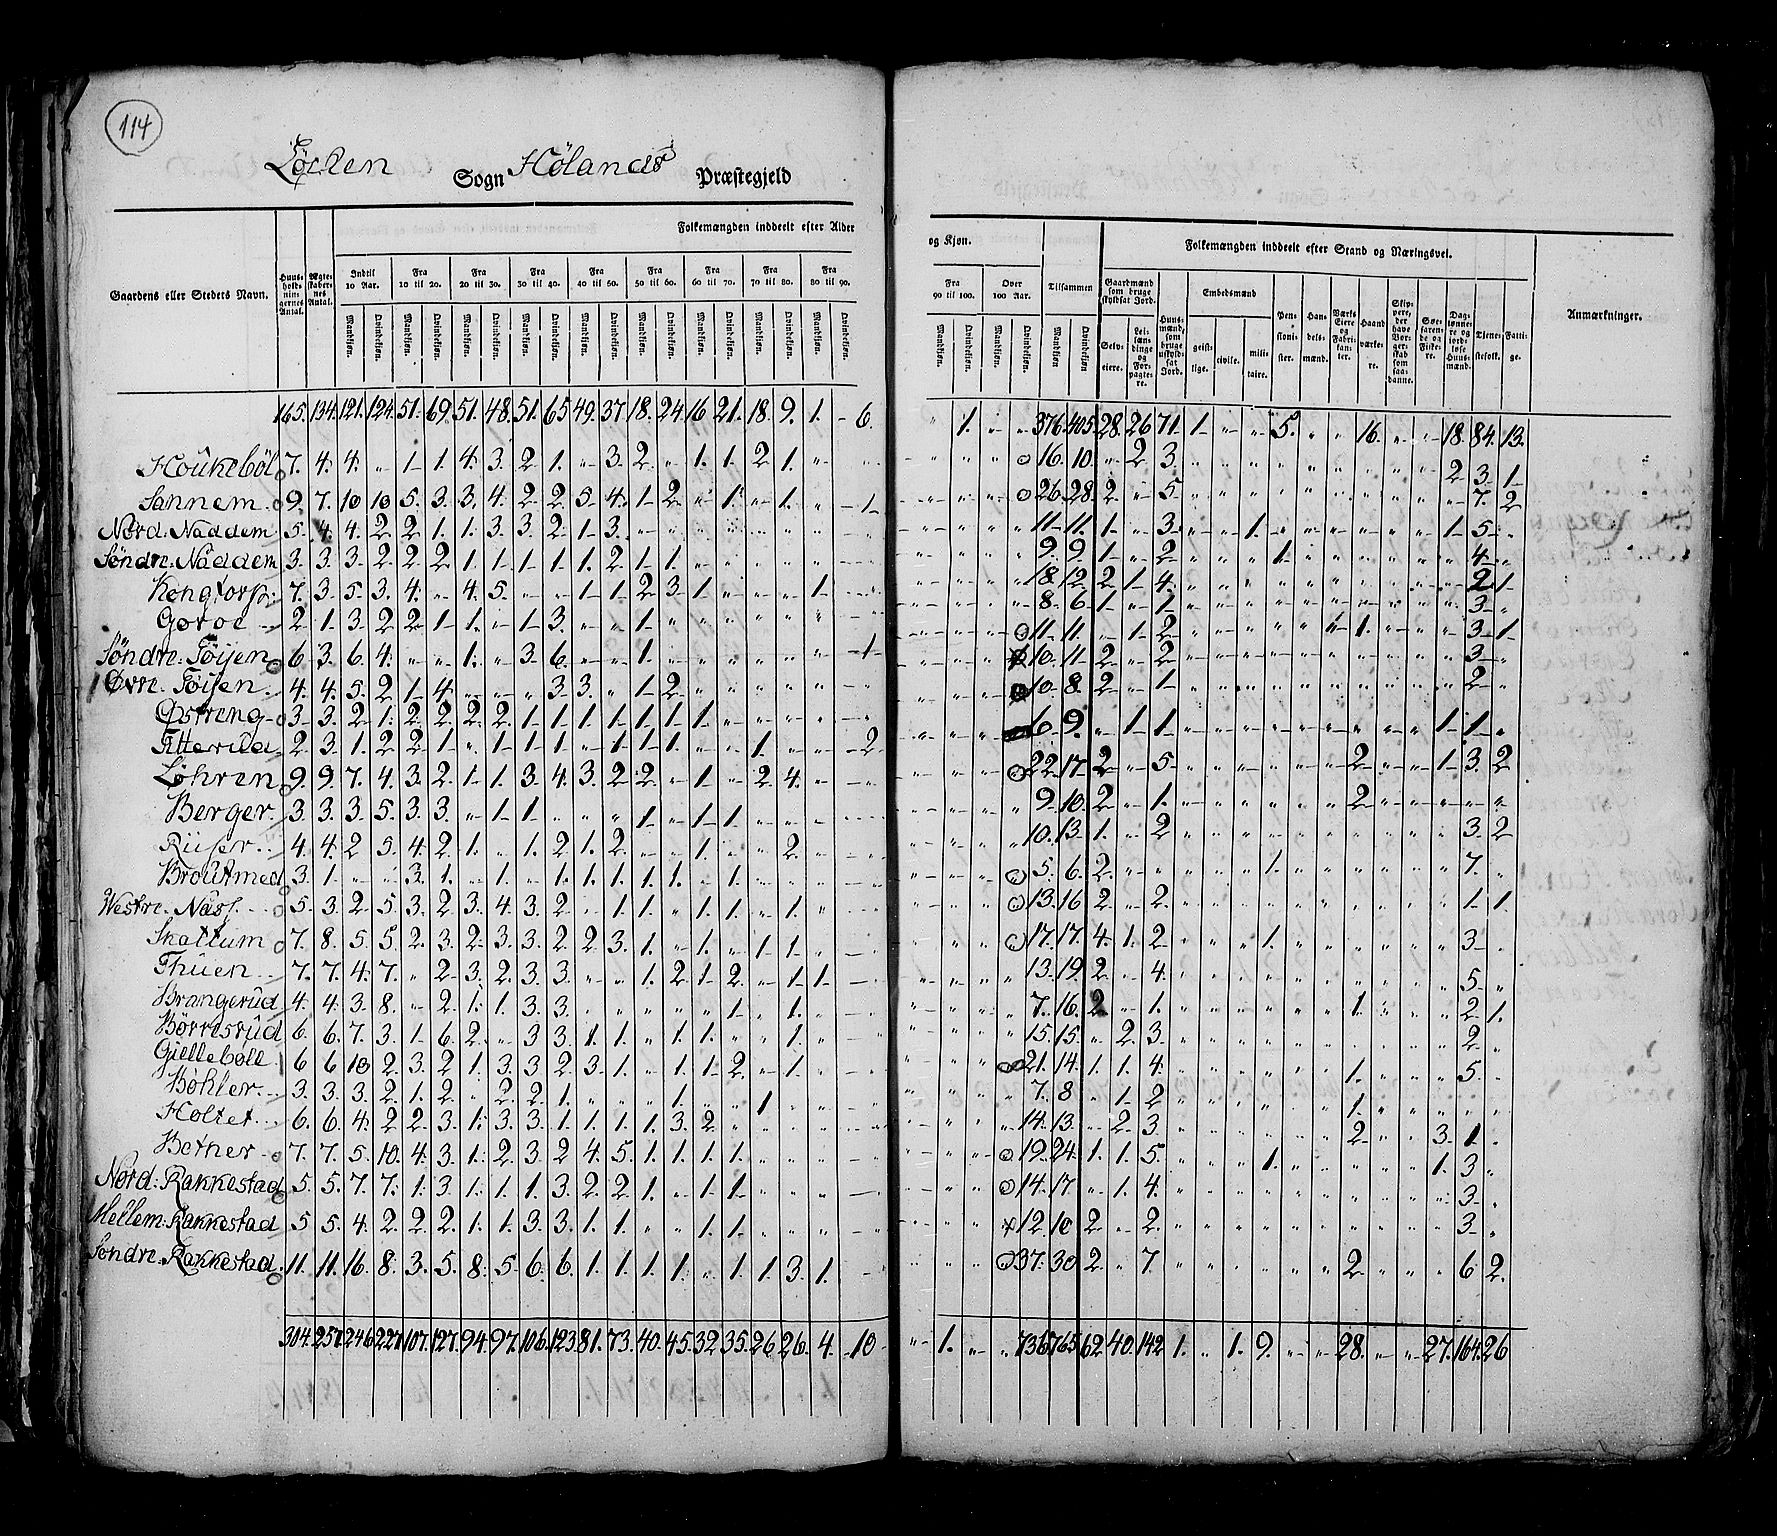 114
Løcken Sogn Hölands Præstegjeld
Gaardens eller Steders Navn. Huus-holdnin-gernes Antal. Ægte-skaber-nes Antal. Folkemængden inddeelt efter Alder og Kjøn. Tilsammen Folkemængden inddeelt efter Stand og Næringsvei. Anmærkninger.
Indtil 10 Aar. Fra 10 til 20. Fra 20 til 30. Fra 30 til 40. Fra 40 til 50. Fra 50 til 60. Fra 60 til 70. Fra 70 til 80. Fra 80 til 90. Fra 90 til 100. Over 100 Aar.
Mandkjøn. Qvindekjøn.
Gaardmænd som bruge skyldsat Jord. Selv-eiere. Lei-lændinge og For-pagtere. Huus-mænd, som bruge uskyld-sat Jord. Embedsmænd geist-lige. civile. mili-taire. Pen-sioni-ster. Han-dels-mænd. Værks Eiere og Fabri-kanter. Haand værke-re. Skip-pere, der have Bor-ger-skab som saa-danne. Søe-farende og Fiske-re. Dag-lønne-re og jord-løse Huus-mænd. Tjene-stefolk. Fatti-ge.
165. 134. 121. 124. 51. 69. 51. 48. 51. 65 49. 37 18. 24. 16 21. 18. 9. 1. - 6. " 1. " " 376. 405. 28. 26 71. 1 " " 5. " " 16. " " 18. 84. 13.
Houkebøl 7. 4. 4. " 1 1. 4. 3. 2 1. " 3. 2 " 1. 1. 2 1. 16. 10. " 2 3. 2 3. 1
Sannem 9. 7. 10 10 5. 3. 3. 4. 2 2 5 4. 1 2 " 1. " 1. " 1 26 28 2 " 5 7. 2
Nord. Naddem 5. 4. 4. 2 2 1. 1. 3. 3 2 1 3. 11 11. 1 " 3. 1. 1 5
Söndre. Naddem 3. 3. 3. 2 2 2 1. 1. 1. 1. 1. 2 1 1. 9. 9 1 " 2 1. 4
7. 3. 5. 3. 4. " 4. 5. " " 1 1. 2 3. 1 1. 18. 12. 2 1 4. 2. 1
2 1. 3. 2 2 1 1. " 1 3. " " 1 8. 6. 1 " 1. 3.
Söndre. Töijen 6. 3. 6. 4. " " 1. " 3 6. " " 1. 1 11. 11. " 1 2 1. 3 1
Øvre. Töijen 4. 4. 5. 2 1 4. " " " 3 3. " 1 2 10. 11 2 " 2 3.
Østreng 3. 3. 2 1. 2. 2 2. 2. 1 1 1 1 1. 1. 1 10 8. 2 " 1. 2
2. 3. 1. 2 2 1. " 1 1 1. " 1 1. 1. " " 1. 2 6. 9. " 1 1. 1 1
Løhren 9. 9. 7. 4. 3. 2. 1 1. 3. 4. 3. 2 2. " 1 " 2 4. 22. 17. 2 " 5. 2 1. 3. 2
Berger. 3. 3. 3. 5. 3. 3. " 1 1. 1 " 1 1. 9 10. 2 " 1. 2
4. 4. 2 5. 4. 2 1. " 1. 2 1. 2. " " 1. " " 2. 10. 13. 1. " 2 3. 2
Broutmed 3. 1. " " 3. 1. " 1. " 1. 1. 1. 1. 1. " 1. 5. 6. 2. 1. 7.
Westre. Næss. 5. 3. 2 5. 3. 2 3. 4. 3. 2 " 1. 1. " 1. 1. " 1. 13. 16 2 " 2. 1. 1.
Skallum 7. 8. 5. 5. 2. 3. 2. 3. 3. 2 2 3. 1. " 1. " 1 1. 17. 17. 4. 1. 2 1. 3
Thuen 7. 7. 4. 7. " 2. 3. 2. 3. 3. " " 1. 2 1. 2. " 1. 1. 13. 19. 2 " 4. 5.
Brangerud 4. 4. 3. 8. " 2. 1. 1. 3. 3. 1. " 1. 7. 16. 2 " 1. 1. 2 1.
Börresrud 6. 6. 7. 3. 1. 6. 2. " 3 3. 1. 1. " 1. 1. " " 1. 15. 15. " 2 3. 2
Giellebøll 6 6 10 2. 3. 2 1. 3. 3 2 3. 1. " 1. 1. 2. " 1. 21. 14. 1. 1. 4. 1. 5.
Böhler 3. 3. 3. 2. 1. 2. " 2. 2 1. 1. 1 7. 8 " 1. 2 1.
Holtet 6. 6. 4. 2 2 3. 1. 3. 3. 1. 1. 1. 1. 3. 2 14. 13. " 2 3. 2 3. 1.
Bether 7. 7. 5. 10. 4. 3. 1. 2 3. 2 4. 5. 1. 1. 1. 1. 19. 24. 1. 1. 5. 1. 1. 3
Nord. Kakkestad 5. 5. 7. 7. 1. 3. 1. 1. 1. 3. 2 2. 1. " 1. 1. 14. 17 " 1. 4. 3.
Mellem. Kakkestad 5. 5. 4. 2. 2. 2. 1. 1. 3. 3. 1. 1. " " 1. 1. 12. 10 2 " 2. 3
Söndre. Kakkestad. 11. 11. 16. 8. 3. 5. 8. 5 6. 6. 1. 1. 1. 1. " 1. 1. 3. 1. 37. 30 2. " 7. 2 6 2.
304. 257. 246. 227. 107. 127. 94. 97. 106. 123. 81. 73. 40. 45. 32. 35. 26 26. 4. 10 " 1. " " 736. 765. 62. 40. 142 1. " 1. 9. " " 28. " " 27. 164. 26